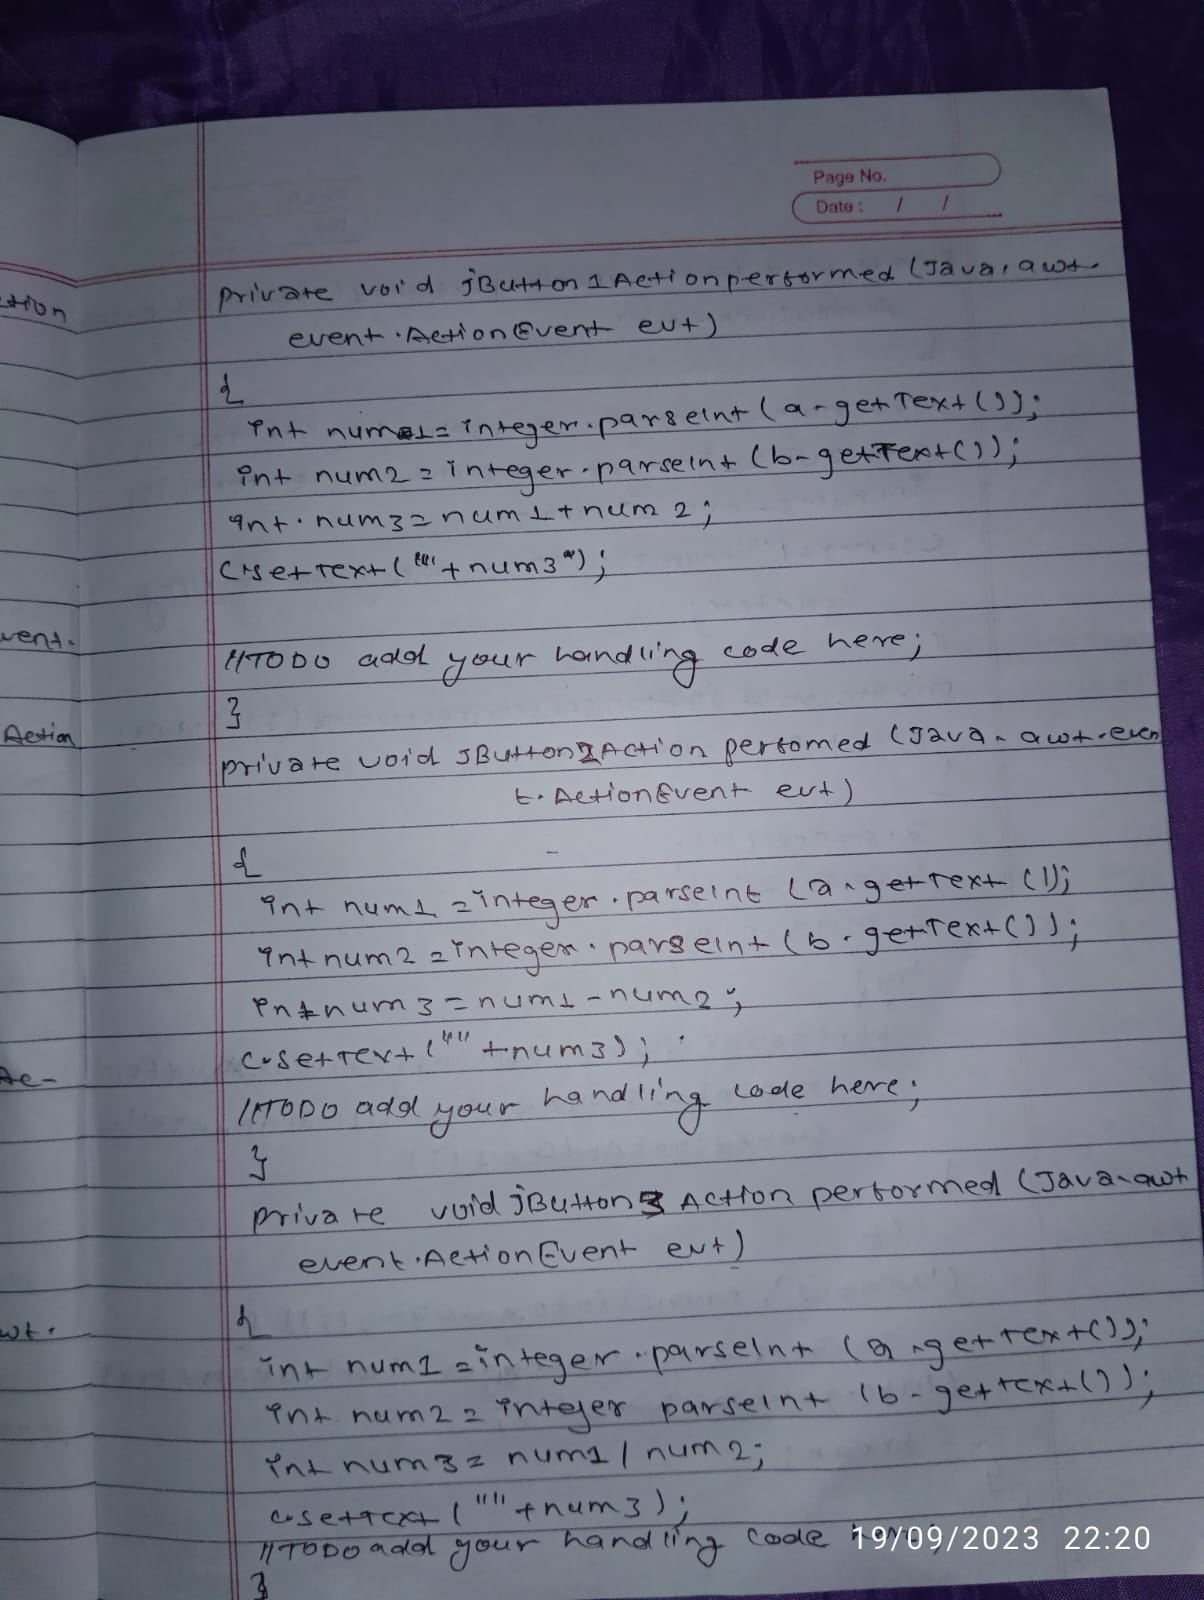 Page No.
Date : / /
private void jButton1Actionperformed (Java.awt.
event.ActionEvent evt)
{
int num1=integer.parseInt(a.getText());
int num2=integer.parseInt(b.getText());
int.num3=num1+num2;
C.setText(""+num3");
//TODO add your handling code here;
}
private void JButton2Action perfomed (Java.awt.even
t.ActionEvent evt)
{
int num1=integer.parseInt (a.getText());
int num2=integer.parseInt(b.getText());
int num3=num1-num2;
c.setText(""+num3);
//TODO add your handling code here;
}
private void jButton3 Action performed (Java.awt
event.ActionEvent evt)
{
int num1=integer.parseInt (a.gettext());
int num2=integer parseInt (b.gettext());
int num3= num1/num2;
c.settext (""+num3);
//TODO add your handling code
}
19/09/2023 22:20
ction
vent.
Action
Ac-
wt.